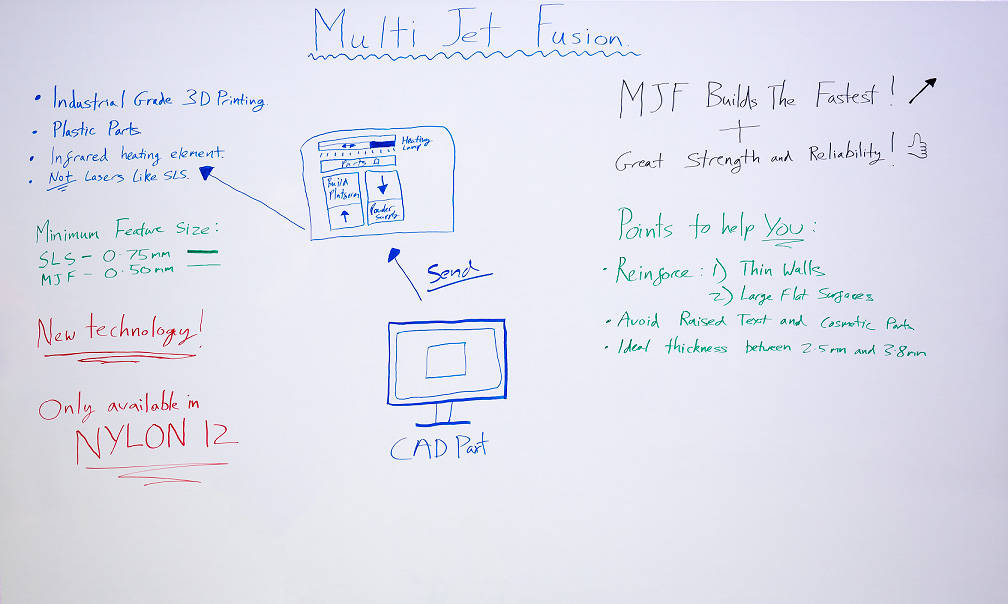 Multi Jet Fusion.
• Industrial Grade 3D Printing.
• Plastic Parts
• Infrared heating element.
• Not Lasers Like SLS.
Minimum Feature Size:
SLS - 0.75mm
MJF - 0.50mm
New technology!
Only available in
NYLON 12
Heating
Lamp
Parts
Build
Platform
Powder
Supply
Send
CAD Part
MJF Builds The Fastest!
+
Great Strength and Reliability!
Points to help You:
• Reinforce: 1) Thin Walls
2) Large Flat Surfaces
• Avoid Raised Text and Cosmetic Parts
• Ideal thickness between 2.5mm and 3.8mm